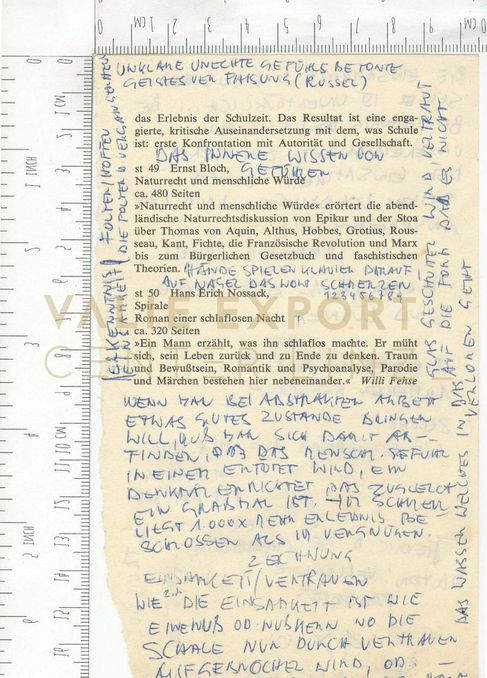 UNKLARE UNECHTE GEFÜHLSBETONTE
GEISTESVERFASSUNG (RUSSEL)
das Erlebnis der Schulzeit. Das Resultat ist eine enga-
gierte, kritische Auseinandersetzung mit dem, was Schule
ist: erste Konfrontation mit Autorität und Gesellschaft.
DAS INNERE WISSEN VON
GEFÜHLEN
st 49 Ernst Bloch,
Naturrecht und menschliche Würde
ca. 480 Seiten
»Naturrecht und menschliche Würde« erörtert die abend-
ländische Naturrechtsdiskussion von Epikur und der Stoa
über Thomas von Aquin, Althus, Hobbes, Grotius, Rous-
seau, Kant, Fichte, die Französische Revolution und Marx
bis zum Bürgerlichen Gesetzbuch und faschistischen
Theorien.
HÄNDE SPIELEN KLAVIER DARAUF
AUF NAGEL DAS WORT SCHMERZEN
123456789
st 50 Hans Erich Nossack,
Spirale
Roman einer schlaflosen Nacht
ca. 320 Seiten
»Ein Mann erzählt, was ihn schlaflos machte. Er müht
sich, sein Leben zurück und zu Ende zu denken. Traum
und Bewußtsein, Romantik und Psychoanalyse, Parodie
und Märchen bestehen hier nebeneinander.« Willi Fehse
WENN MAN BEI ABSTRAKTER ARBEIT
ETWAS GUTES ZUSTANDE BRINGEN
WILL, MUß MAN SICH DAMIT AB-
FINDEN, DAß DAS MENSCHL. GEFÜHL
IN EINEM ERTÖTET WIRD, EIN
DENKMAL ERRICHTET DAS ZUGLEICH
EIN GRABMAL IST. IM SCHMERZ
LIEGT 1.000X MEHR ERLEBNIS BE
SCHLOSSEN ALS IM VERGNÜGEN.
ZEICHNUNG
EINSAMKEIT/VERTRAUEN
WIE DIE EINSAMKEIT IST WIE
EINE NUß OD. WO DIE
SCHALE NUR DURCH VERTRAUEN
AUFGEBROCHEN WIRD, OD.
ERKENNTNIS
EINSAMKEIT
FOLTER/HOFFEN
DIE FOLTER D. VERGANGENHEIT
GLAS GESCHÜTTET WIRD VERTRAU-
AUF DIE FORM DABEI NICHT
VERLOREN GEHT
DAS WASSER WELCHES IN DAS
VALIE EXPORT
CENTER LINZ
1 INCH
2 INCH
1 CM
10 CM
0 1 2 3 4 5 6 7 8 9